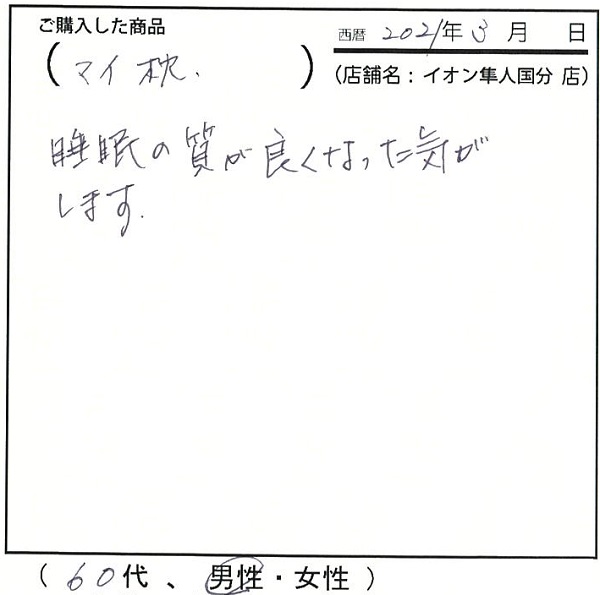 ご購入した商品
西暦 2021年3月 日
(マイ枕.)
(店舗名:イオン隼人国分 店)
睡眠の質が良くなった気が
します.
(60代、男性・女性)